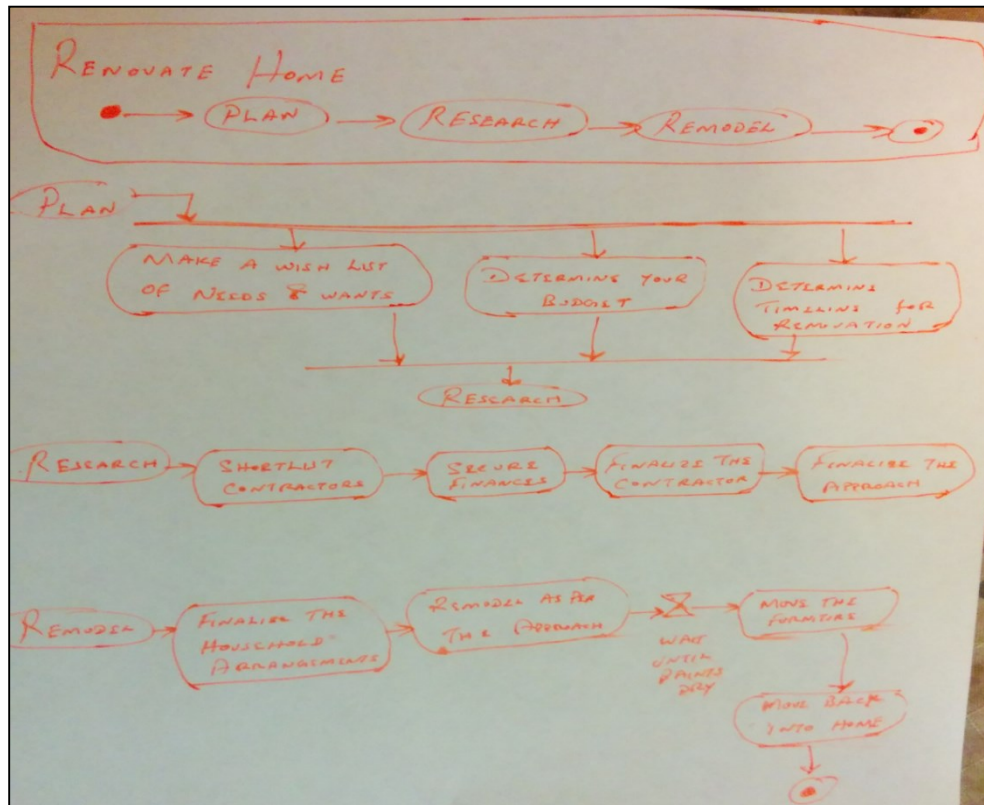 RENOVATE HOME
PLAN
RESEARCH
REMODEL
PLAN
MAKE A WISH LIST
OF NEEDS & WANTS
DETERMINE YOUR
BUDGET
DETERMINE
TIMELINE FOR
RENOVATION
RESEARCH
RESEARCH
SHORTLIST
CONTRACTORS
SECURE
FINANCES
FINALIZE THE
CONTRACTOR
FINALISE THE
APPROACH
REMODEL
FINALISE THE
HOUSEHOLD
ARRANGEMENTS
REMODEL AS PER
THE APPROACH
WAIT
UNTIL
PAINTS
DRY
MOVE THE
MOVE BACK
INTO HOME